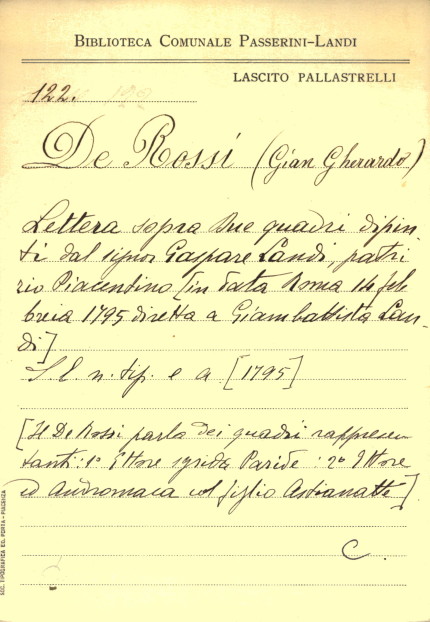 BIBLIOTECA COMUNALE PASSERINI-LANDI
LASCITO PALLASTRELLI
122.
De Rossi (Gian Gherardo)
Lettera sopra due quadri dipin-
ti dal signor Gaspare Landi, patri
zio Piacentino [in data Roma 14 feb
braia 1795 diretta a Giambattista Lan-
di]
S. l. n. tip. e a [1795]
[Il De Rossi parla dei quadri rappresen
tanti: 1º Ettore sgrida Paride: 2º Ettore
ed Andromaca col figlio Astianatte]
C.
SOC. TIPOGRAFICA ED. PORTA - PIACENZA